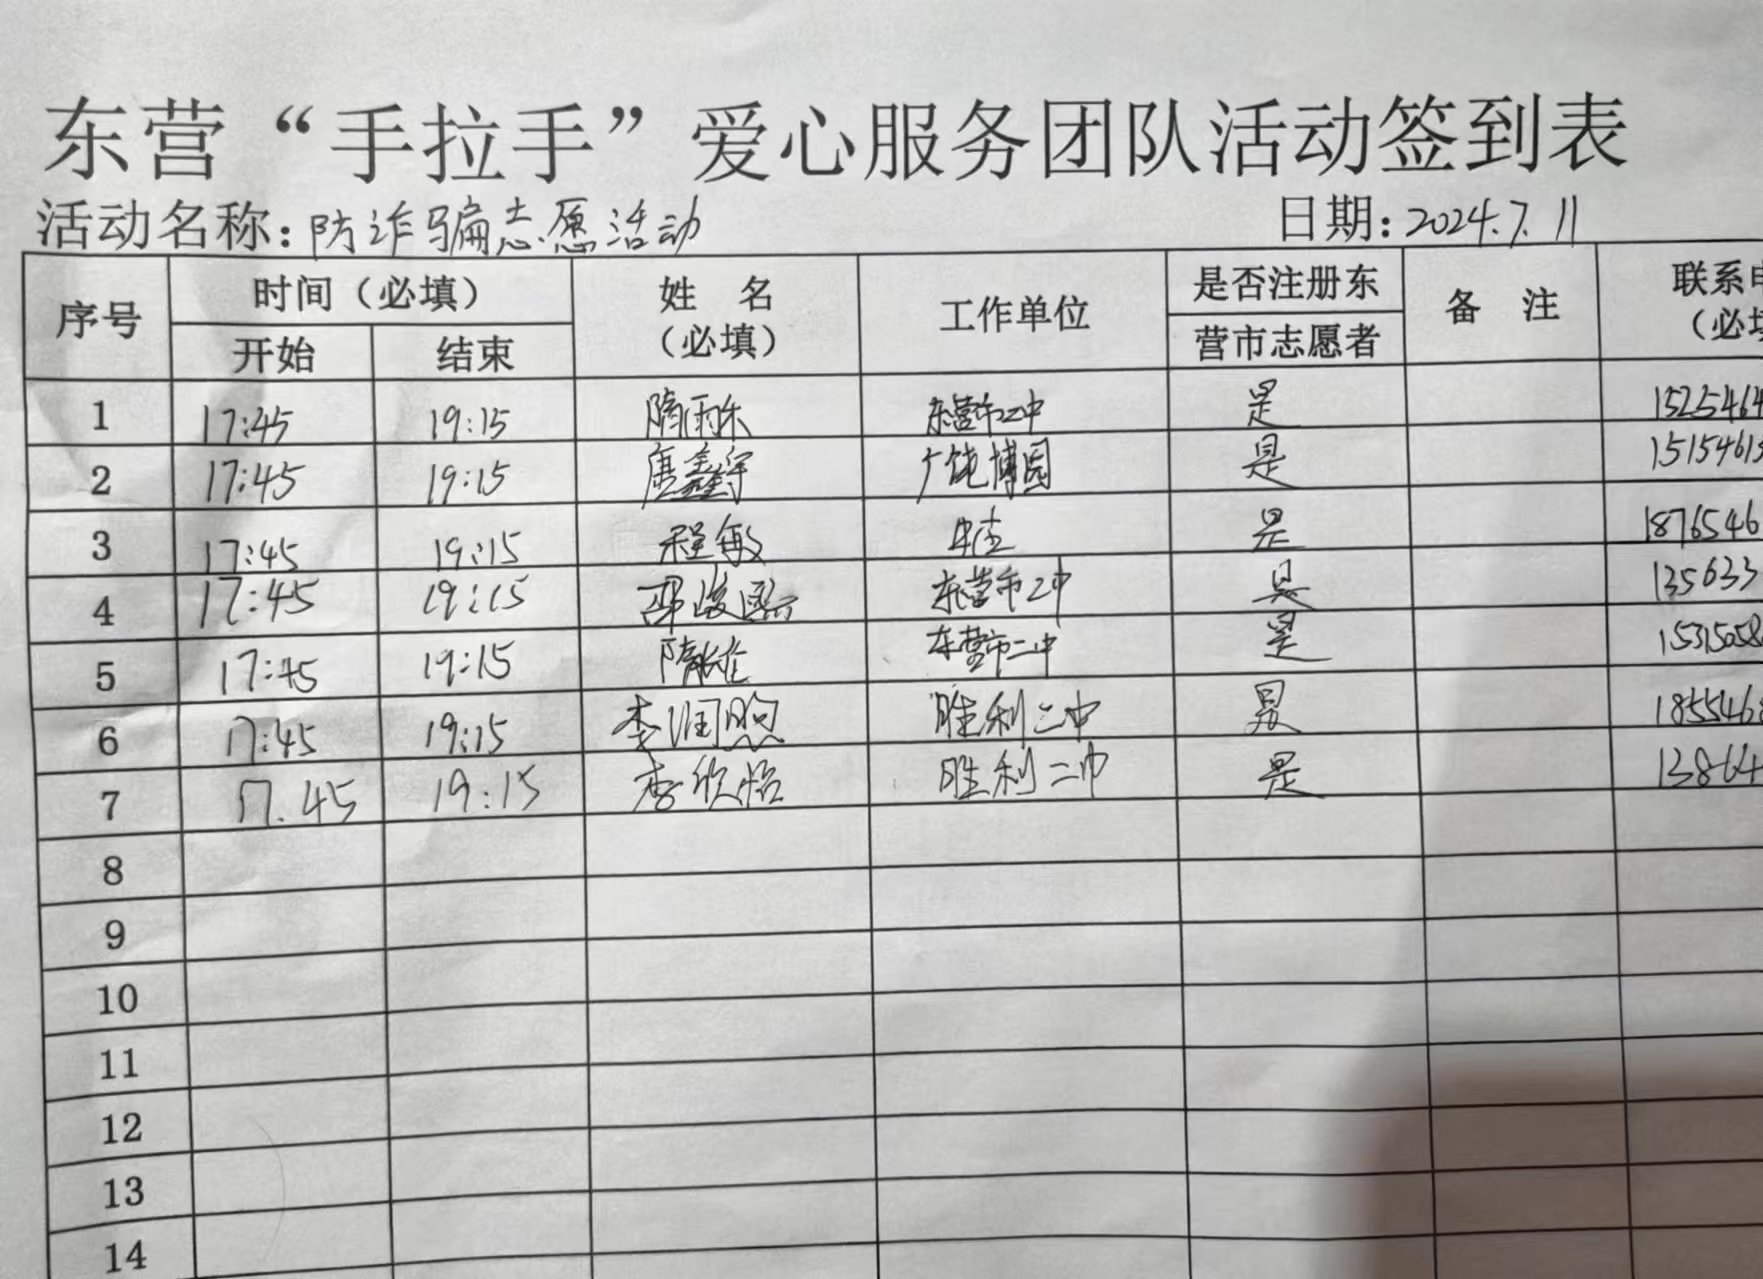 东营“手拉手”爱心服务团队活动签到表
活动名称:防诈骗志愿活动 日期:2024.7.11
序号 时间（必填） 姓 名 （必填） 工作单位 是否注册东 营市志愿者 备 注 联系
开始 结束
1 17:45 19:15 隋雨乐 东营市二中 是 1525464
2 17:45 19:15 唐鑫宇 广饶博园 是 1515461
3 17:45 19:15 程敏 是 1876546
4 17:45 19:15 东营市二中 是 135633
5 17:45 19:15 东营市二中 是 1531505
6 17:45 19:15 李润煦 胜利二中 是 185546
7 17.45 19:15 李欣怡 胜利二中 是 13864
8
9
10
11
12
13
14